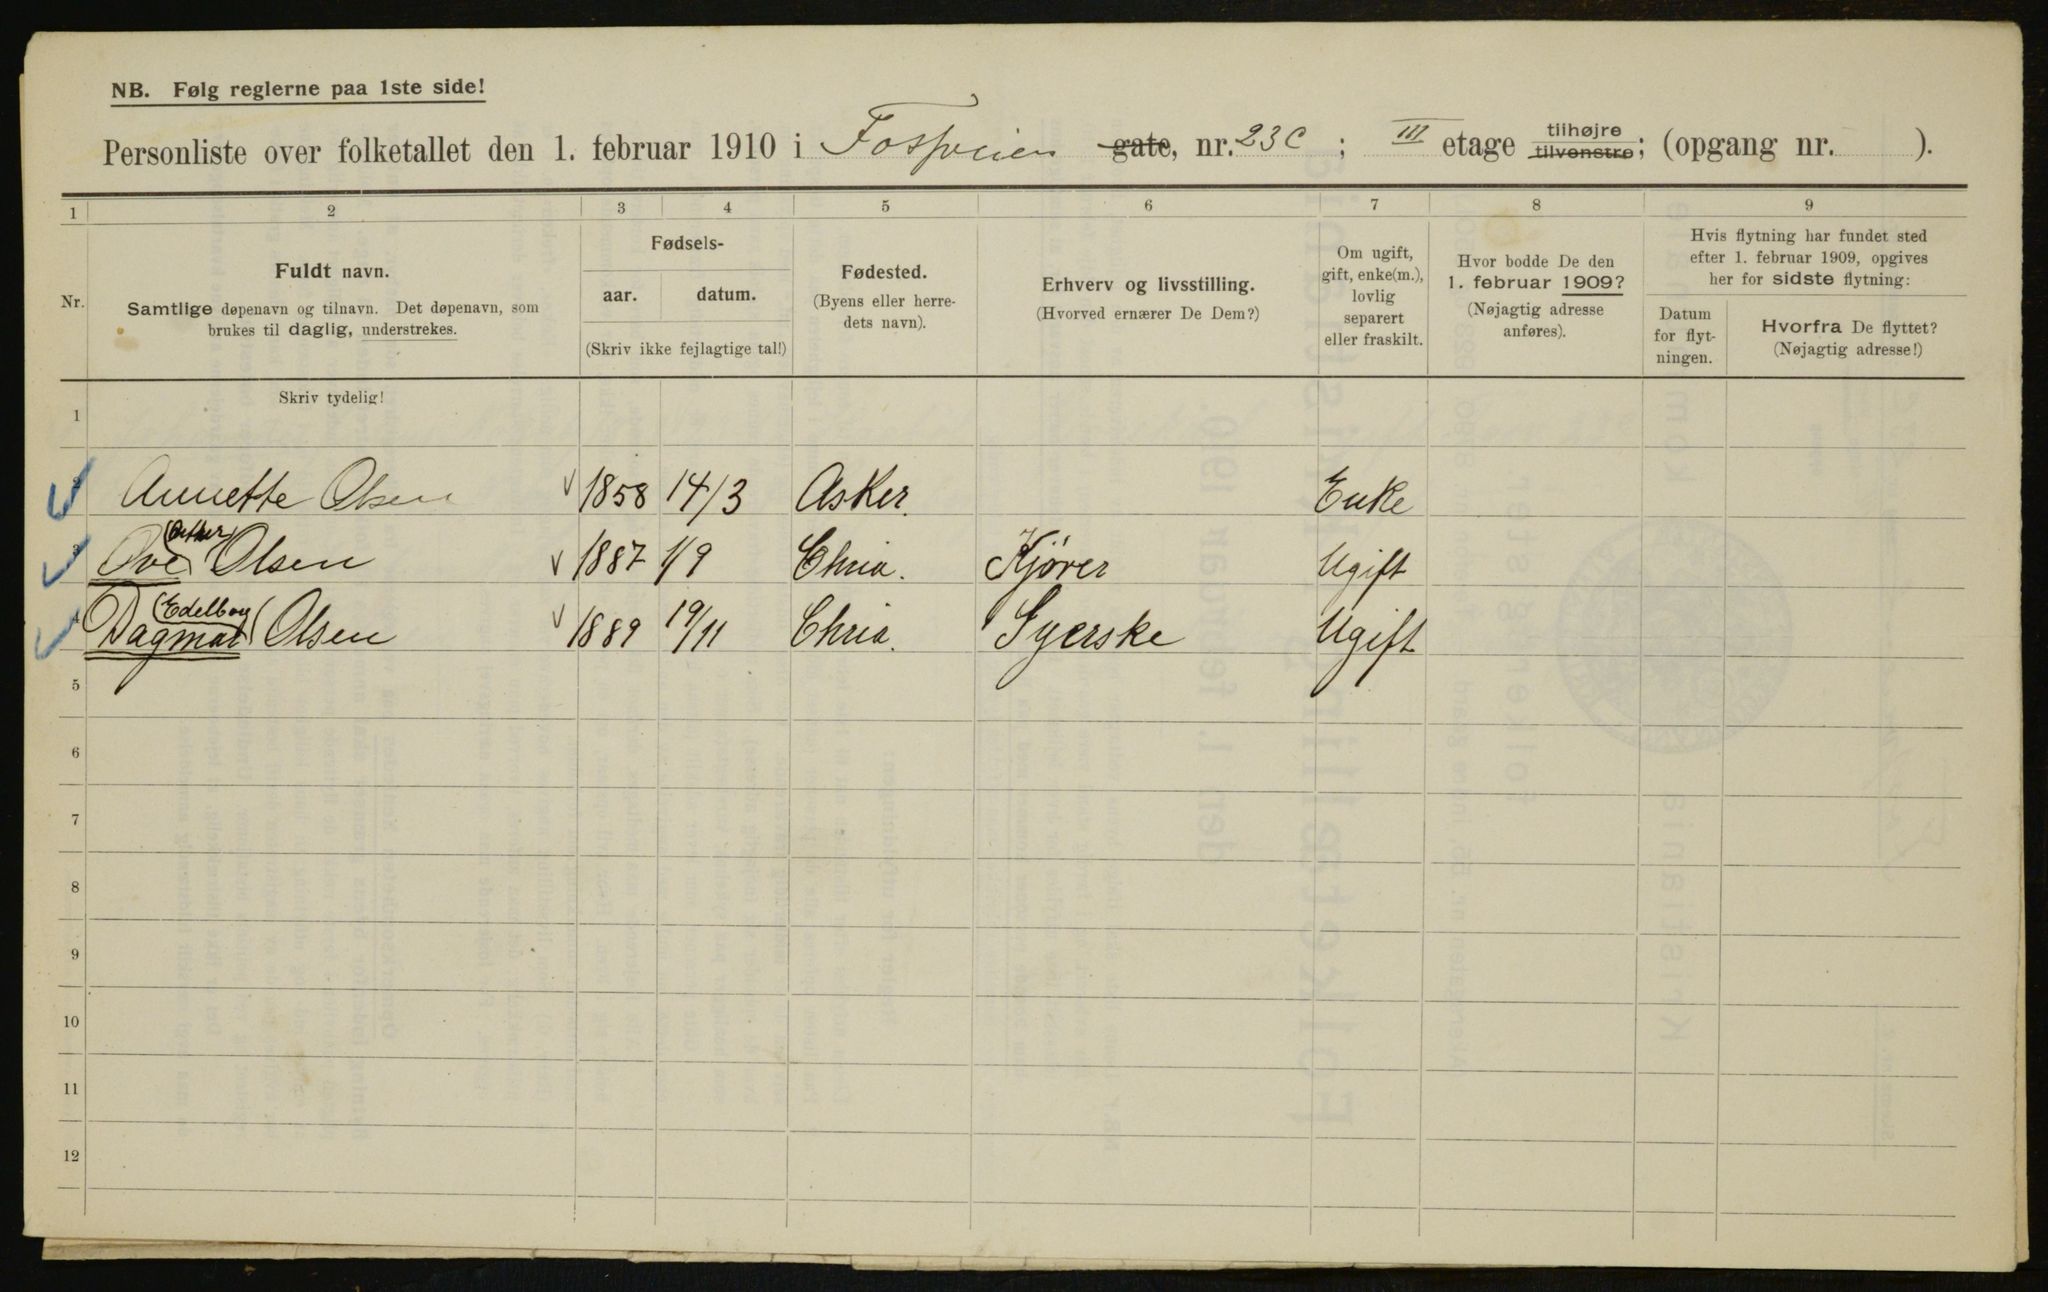 NB. Følg reglerne paa 1ste side!
Personliste over folketallet den 1. februar 1910 i Fossveien gate, nr. 23c ; III etage tilhøjre tilvenstre; (opgang nr. ).
1 2 3 4 5 6 7 8 9
Nr.
Fuldt navn.
Samtlige døpenavn og tilnavn. Det døpenavn, som
brukes til daglig, understrekes.
Skriv tydelig!
Fødsels-
aar. datum.
(Skriv ikke fejlagtige tal!)
Fødested.
(Byens eller herre-
dets navn).
Erhverv og livsstilling.
(Hvorved ernærer De Dem?)
Om ugift,
gift, enke(m.),
lovlig
separert
eller fraskilt.
Hvor bodde De den
1. februar 1909?
(Nøjagtig adresse
anføres).
Hvis flytning har fundet sted
efter 1. februar 1909, opgives
her for sidste flytning:
Datum
for flyt-
ningen.
Hvorfra De flyttet?
(Nøjagtig adresse!)
1
2 Annette Olsen 1858 14/3 Asker. Enke
3 Ove (Arthur) Olsen 1887 1/9 Chria. Kjører Ugift
4 Dagmar (Edelborg) Olsen 1889 19/11 Chria. Syerske Ugift
5
6
7
8
9
10
11
12